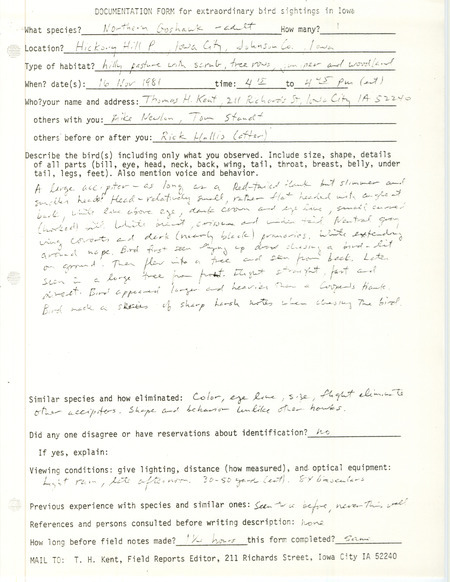 DOCUMENTATION FORM for extraordinary bird sightings in Iowa
What species? Northern Goshawk - adult How many? 1
Location? Hickory Hill P., Iowa City, Johnson Co. Iowa
Type of habitat? hilly pasture with scrub, tree rows, and woodland
When? date(s): 16 Nov 1981 time: 4 to 4 pm (est)
Who? your name and address: Thomas H. Kent, 211 Richards St, Iowa City IA 52240
others with you: Mike Newlon, Tom Staudt
others before or after you: Rick Hollis (later)
Describe the bird(s) including only what you observed. Include size, shape, details
of all parts (bill, eye, head, neck, back, wing, tail, throat, breast, belly, under
tail, legs, feet). Also mention voice and behavior.
A large accipiter - as long as a Red-tailed Hawk but slimmer and
smaller head. Head - relatively small, rather flat headed with angle at
back, white line above eye, dark crown and eye line, small curved
(hooked) bill. White
wing coverts and dark (nearly black) primaries. White extending
around nape. Bird first seen flying up draw chasing a bird - lit
on ground. Then flew into a tree and seen from back. Later
seen in a large tree from front. Flight straight, fast and
direct. Bird appeared larger and heavier than a Cooper's Hawk.
Bird made a series of sharp harsh notes when chasing the bird.
Similar species and how eliminated: Color, eye line, size, flight eliminate
other accipiters. Shape and behavior unlike other hawks.
Did any one disagree or have reservations about identification? no
If yes, explain:
Viewing conditions: give lighting, distance (how measured), and optical equipment:
Light rain, late afternoon. 30-50 yards (est). 8X binoculars
Previous experience with species and similar ones: Seen before, never this well
References and persons consulted before writing description: none
How long before field notes made? 1½ hours this form completed? same
MAIL TO: T. H. Kent, Field Reports Editor, 211 Richards Street, Iowa City IA 52240